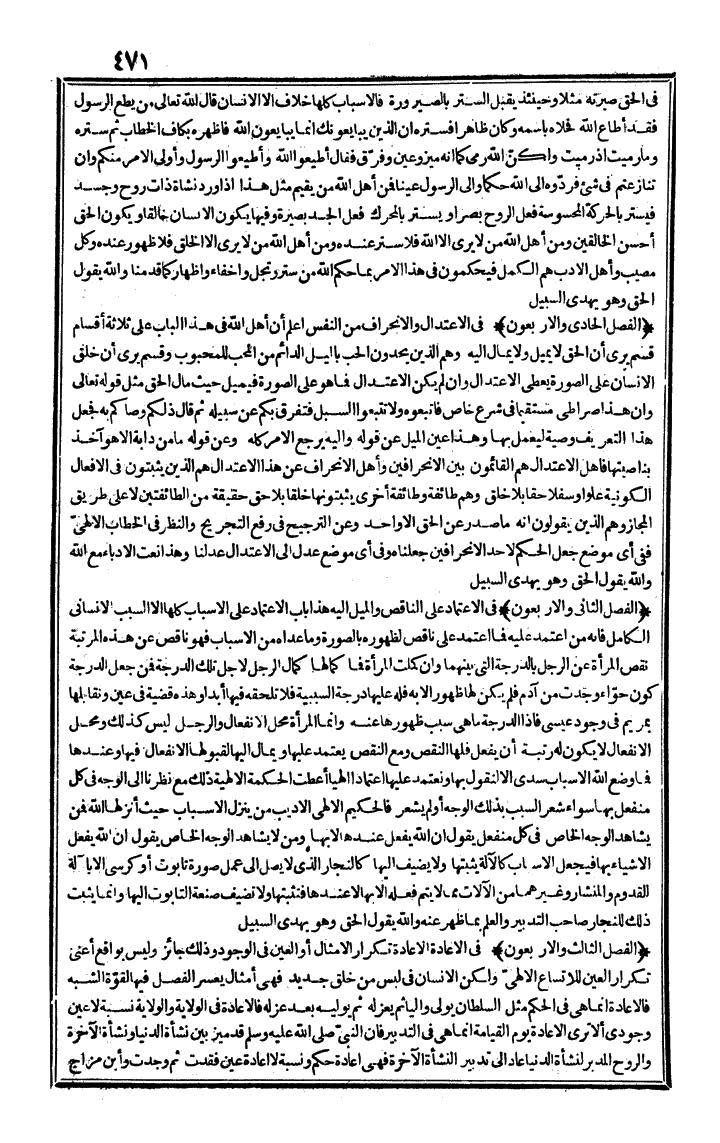 ٤٧١
فى الحق صيرته مثلا وحينئذ يقبل الستر بالصيرورة فالاسباب كلها خلاف الا الانسان قال الله تعالى من يطع الرسول
فقد أطاع الله فجلاه باسمه وكان ظاهرا فستره ان الذين يبايعونك انما يبايعون الله فاظهره بكاف الخطاب ثم ستره
وما رميت اذ رميت ولكنّ الله رمى كما انه ميز وعين وفرّق فقال أطيعوا الله وأطيعوا الرسول وأولى الامر منكم وان
تنازعتم فى شئ فردّوه الى الله حكما والى الرسول عينا فن أهل الله من يقيم مثل هذا اذا ورد نشأة ذات روح وجسد
فيستر بالحركة المحسوسة فعل الروح بصرا ويستر بالمحرك فعل الجسد بصيرة وفيها يكون الانسان خالقا ويكون الحق
أحسن الخالقين ومن أهل الله من لا يرى الا الله فلا ستر عنده ومن أهل الله من لا يرى الا الخلق فلا ظهور عنده وكل
مصيب وأهل الادب هم الكمل فيحكمون فى هذا الامر بما حكم الله من ستر وتجل واخفاء واظهار كما قدمنا والله يقول
الحق وهو يهدى السبيل
﴿الفصل الحادى والاربعون﴾ فى الاعتدال والانحراف من النفس اعلم أن أهل الله فى هذا الباب على ثلاثة أقسام
قسم يرى أن الحق لا يميل ولا يمال اليه وهم الذين يحدون الحب بالميل الدائم من المحب للمحبوب وقسم يرى أن خلق
الانسان على الصورة يعطى الاعتدال وان لم يكن الاعتدال فاهو على الصورة فيميل حيث مال الحق مثل قوله تعالى
وان هذا صراطى مستقيما فى شرع خاص فاتبعوه ولا تتبعوا السبل فتفرق بكم عن سبيله ثم قال ذلكم وصاكم به فجعل
هذا التعريف وصية ليعمل بها وهذا عين الميل عن قوله واليه يرجع الامر كله وعن قوله ما من دابة الا هو آخذ
بناصيتها فاهل الاعتدال هم القائمون بين الانحرافين وأهل الانحراف عن هذا الاعتدال هم الذين يثبتون فى الافعال
الكونية علوا وسفلا حقا بلا خلق وهم طائفة وطائفة أخرى يثبتونها خلقا بلا حق حقيقة من الطائفتين لا على طريق
المجاز وهم الذين يقولون انه ما صدر عن الحق الا واحد وعن الترجيح فى رفع التجريح والنظر فى الخطاب الالهىّ
فى أى موضع جعل الحكم لاحد الانحرافين جعلناه وفى أى موضع عدل الى الاعتدال عدلنا وهذا نعت الادباء مع الله
والله يقول الحق وهو يهدى السبيل
﴿الفصل الثانى والاربعون﴾ فى الاعتماد على الناقص والميل اليه هذا باب الاعتماد على الاسباب كلها الا السبب الانسانى
الكامل فانه من اعتمد عليه فا اعتمد على ناقص لظهوره بالصورة وما عداه من الاسباب فهو ناقص عن هذه المرتبة
نقص المرأة عن الرجل بالدرجة التى بينهما وان كملت المرأة فا كمالها كمال الرجل لاجل تلك الدرجة فن جعل الدرجة
كون حوّاء وجدت من آدم فلم يكن لها ظهور الا به فله عليها درجة السببية فلا تلحقه فيها أبدا وهذه قضية فى عين ونقابلها
بمريم فى وجود عيسى فاذا الدرجة ما هى سبب ظهورها عنه وانما المرأة محل الانفعال والرجل ليس كذلك ومحل
الانفعال لا يكون له رتبة أن يفعل فلها النقص ومع النقص يعتمد عليها ويمال اليها لقبولها الانفعال فيها وعندها
فاوضع الله الاسباب سدى الا لنقول بها ونعتمد عليها اعتمادا الهيا أعطت الحكمة الالهية ذلك مع نظرنا الى الوجه فى كل
منفعل بها سواء شعر السبب بذلك الوجه أو لم يشعر فالحكيم الالهى الاديب من ينزل الاسباب حيث أنزلها الله فن
يشاهد الوجه الخاص فى كل منفعل يقول ان الله يفعل عندها لا بها ومن لا يشاهد الوجه الخاص يقول ان الله يفعل
الاشياء بها فيجعل الاسباب كالآلة يثبتها ولا يضيف اليها كالنجار الذى لا يصل الى عمل صورة تابوت أو كرسى الا بآلة
القدوم والمنشار وغيرهما من الآلات مما لا يتم فعله الا بها لا عندها فنثبتها ولا تضيف صنعة التابوت اليها وانما يثبت
ذلك للنجار صاحب التدبير والعلم بما ظهر عنه والله يقول الحق وهو يهدى السبيل
﴿الفصل الثالث والاربعون﴾ فى الاعادة الاعادة تكرار الامثال أو العين فى الوجود وذلك جائز وليس بواقع أعنى
تكرار العين للاتساع الالهىّ ولكن الانسان فى لبس من خلق جديد فهى أمثال يعسر الفصل فيها لقوّة الشبه
فالاعادة انما هى فى الحكم مثل السلطان يولى واليا ثم يعزله ثم يوليه بعد عزله فالاعادة فى الولاية والولاية نسبة لا عين
وجودى ألا ترى الاعادة يوم القيامة انما هى فى التدبير فان النبىّ صلى الله عليه وسلم قد ميز بين نشأة الدنيا ونشأة الآخرة
والروح المدبر لنشأة الدنيا عاد الى تدبير النشأة الآخرة فهى اعادة حكم ونسبة لا اعادة عين فقدت ثم وجدت وأين مزاج